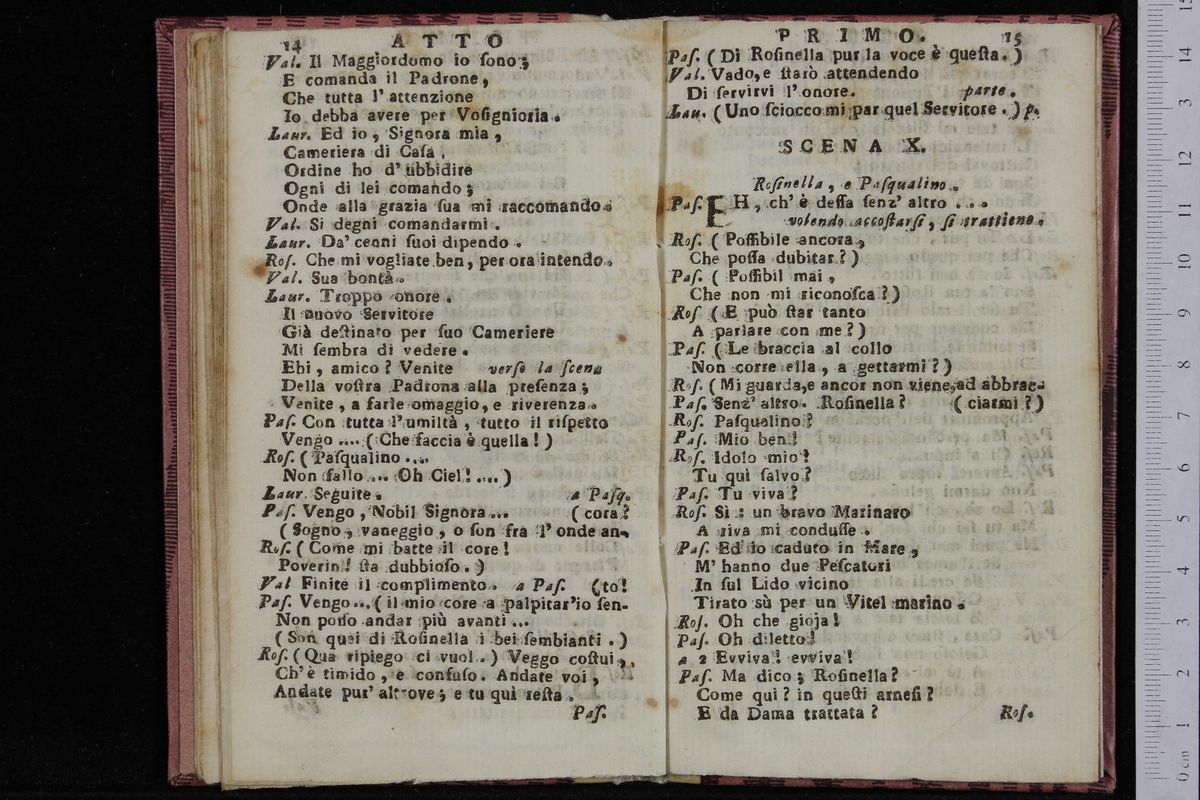 14 ATTO
Val. Il Maggiordomo io ſono;
E comanda il Padrone,
Che tutta l' attenzione
Io debba avere per Voſignioria.
Laur. Ed io, Signora mia,
Cameriera di Caſa,
Ordine ho d' ubbidire
Ogni di lei comando;
Onde alla grazia ſua mi raccomando.
Val. Si degni comandarmi.
Laur. Da' cenni ſuoi dipendo.
Roſ. Che mi vogliate ben, per ora intendo.
Val. Sua bontà.
Laur. Troppo onore.
Il nuovo Servitore
Già deſtinato per ſuo Cameriere
Mi ſembra di vedere.
Ehi, amico? Venite verſo la ſcena
Della voſtra Padrona alla preſenza;
Venite, a farle omaggio, e riverenza.
Paſ. Con tutta l' umiltà, tutto il riſpetto
Vengo .... (Che faccia è quella!)
Roſ. (Paſqualino ....
Non fallo .... Oh Ciel! ....)
Laur. Seguite. a Paſq.
Paſ. Vengo, Nobil Signora... (cora?
(Sogno, vaneggio, o ſon fra l' onde an-
Roſ. (Come mi batte il core!
Poverin! ſta dubbioſo.)
Val Finite il complimento. a Paſ. (to!
Paſ. Vengo... (il mio core a palpitar'io ſen-
Non poſſo andar più avanti ...
(Son quei di Roſinella i bei ſembianti.)
Roſ. (Qua ripiego ci vuol.) Veggo coſtui,
Ch' è timido, e confuſo. Andate voi,
Andate pur' altrove; e tu quì reſta.
Paſ.
PRIMO. 15
Paſ. (Di Roſinella pur la voce è queſta.)
Val. Vado, e ſtarò attendendo
Di ſervirvi l' onore. parte.
Lau. (Uno ſciocco mi par quel Servitore.) p.
SCENA X.
Roſinella, e Paſqualino.
Paſ. EH, ch' è deſſa ſenz' altro ...
volendo accoſtarſi, ſi trattiene.
Roſ. (Poſſibile ancora,
Che poſſa dubitar?)
Paſ. (Poſſibil mai,
Che non mi riconoſca?)
Roſ (E può ſtar tanto
A parlare con me?)
Paſ. (Le braccia al collo
Non corre ella, a gettarmi?)
Roſ. (Mi guarda, e ancor non viene, ad abbrac-
Paſ. Senz' altro. Roſinella? (ciarmi?)
Roſ. Paſqualino?
Paſ. Mio ben!
Roſ. Idolo mio!
Tu quì ſalvo?
Paſ. Tu viva?
Roſ. Sì: un bravo Marinaro
A riva mi conduſſe.
Paſ. Ed io caduto in Mare,
M' hanno due Peſcatori
In ſul Lido vicino
Tirato sù per un Vitel marino.
Roſ. Oh che gioja!
Paſ. Oh diletto!
a 2 Evviva! evviva!
Paſ. Ma dico; Roſinella?
Come qui? in queſti arneſi?
E da Dama trattata?
Roſ.
0 cm 1 2 3 4 5 6 7 8 9 10 11 12 13 14 15